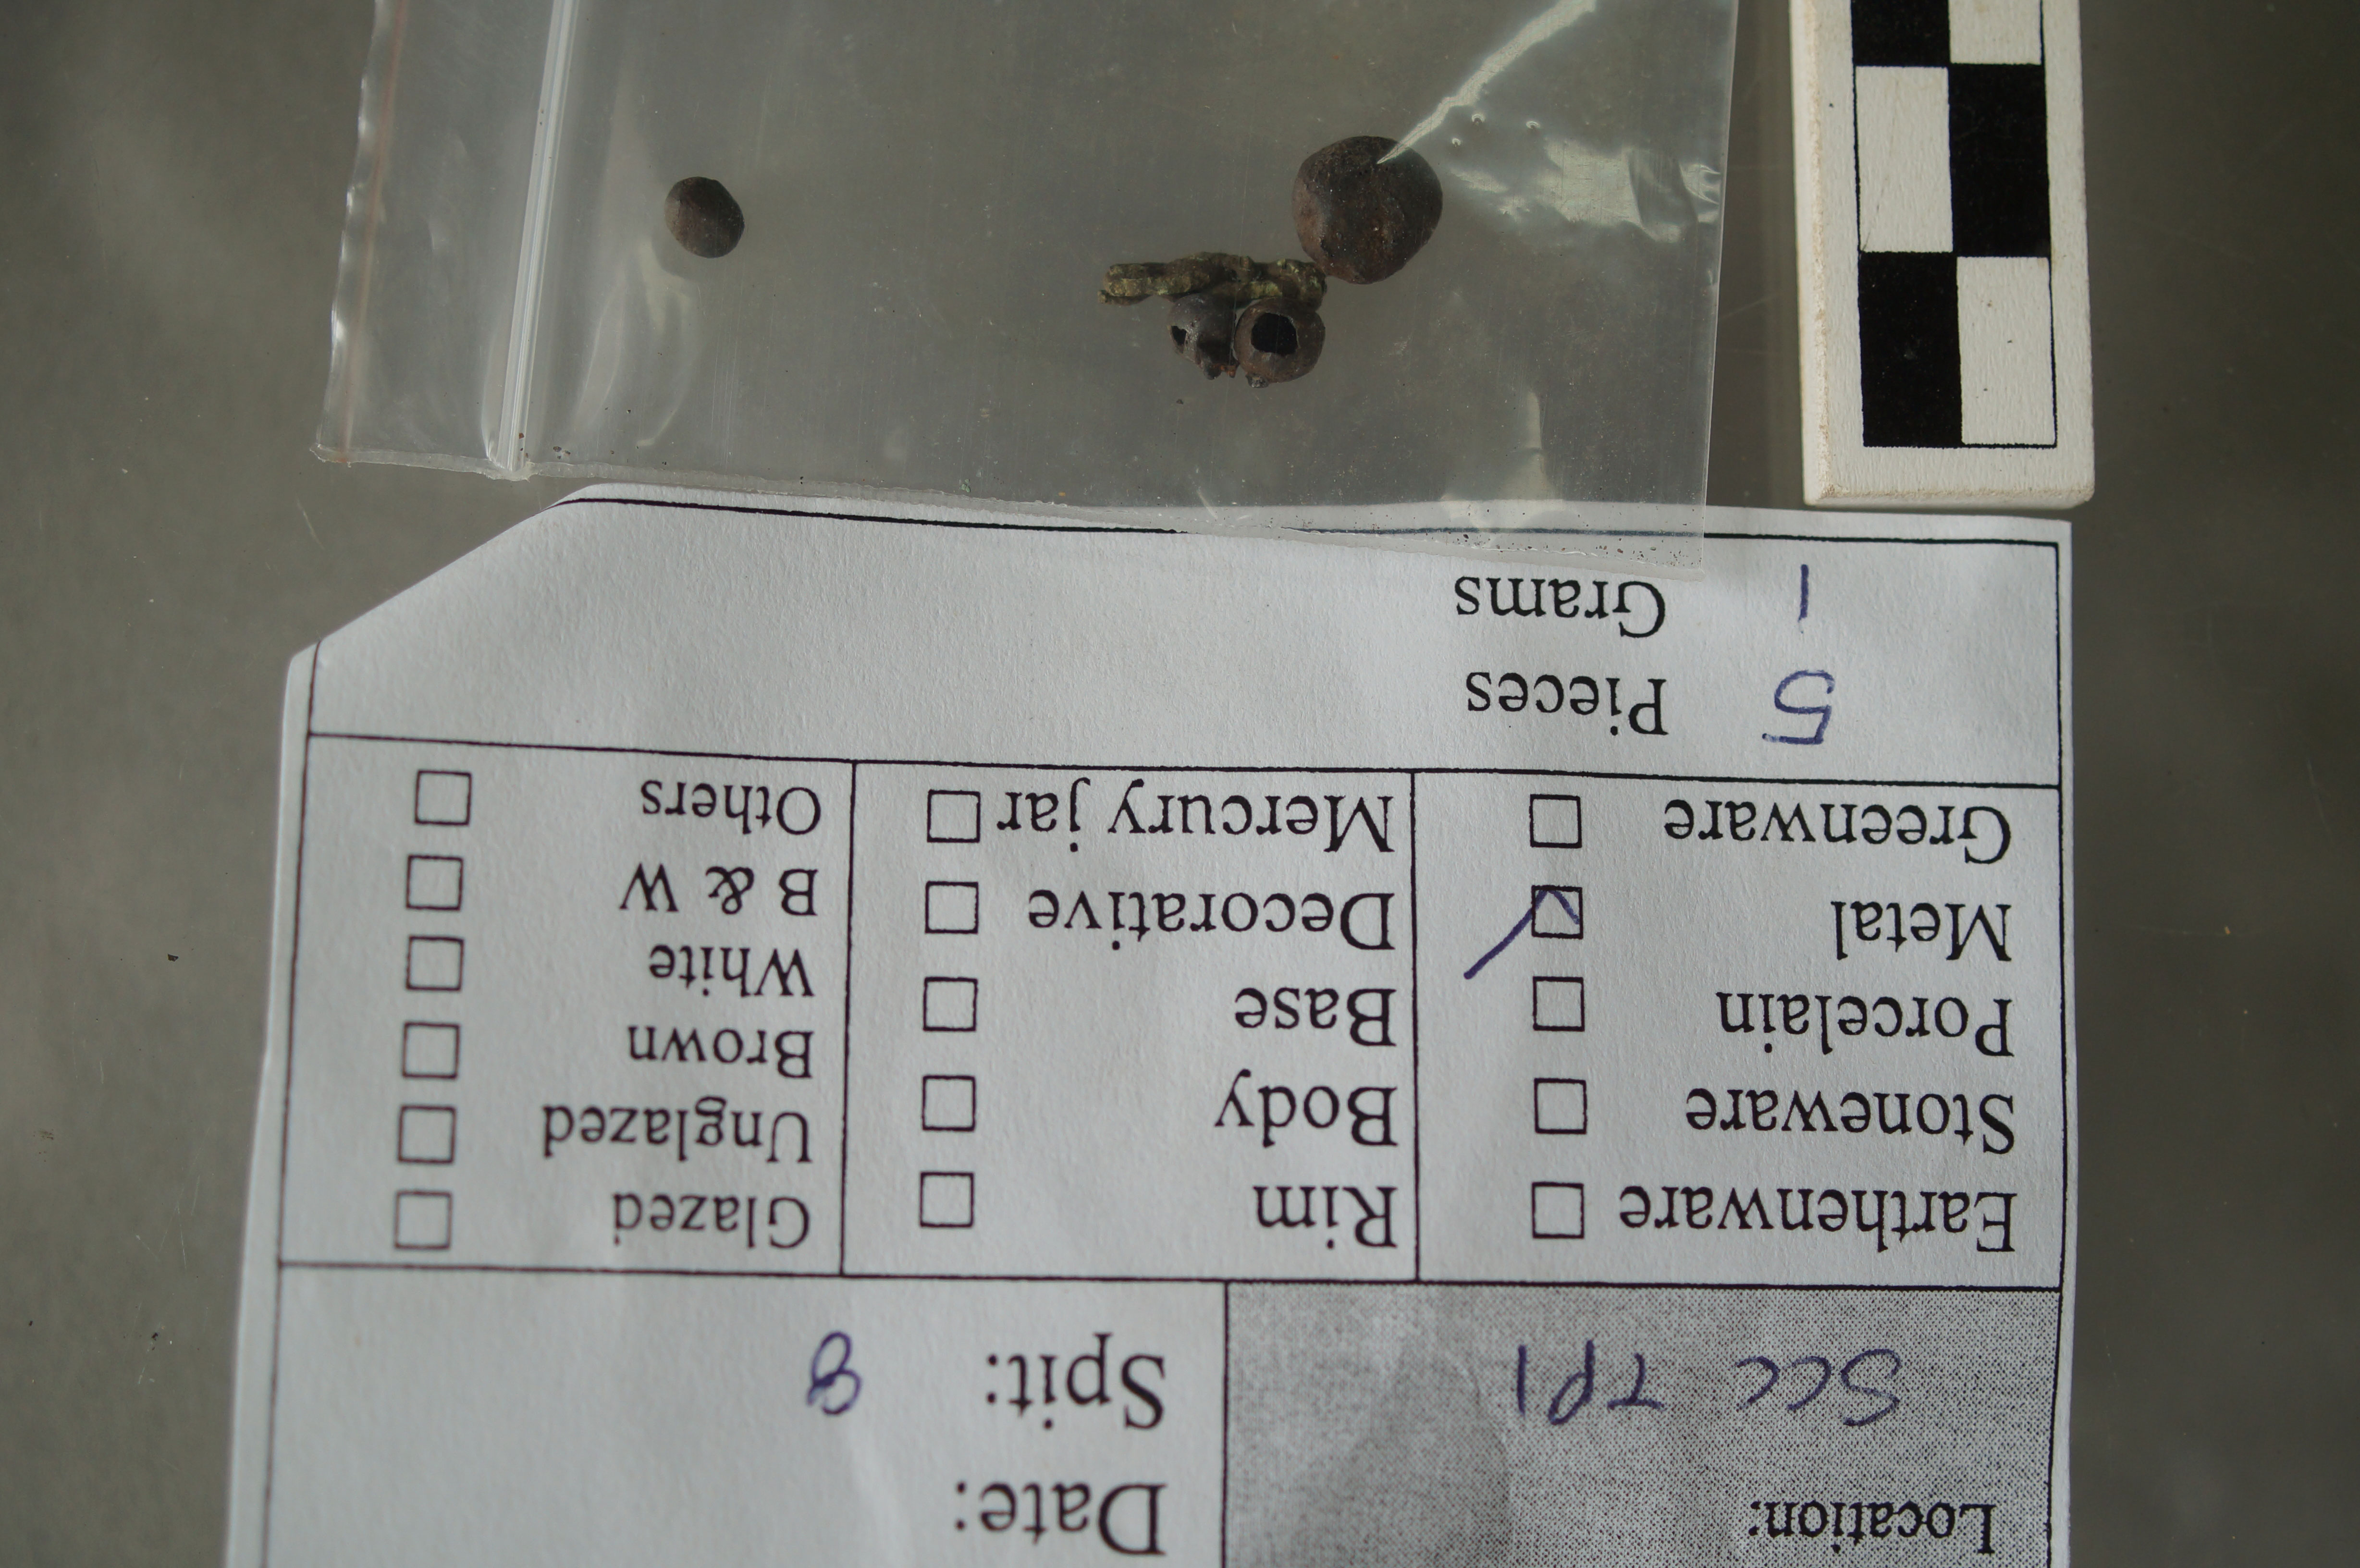 Location:
SCC TP1
Date:
Spit: 8
Earthenware ☐
Stoneware ☐
Porcelain ☐
Metal ☑
Greenware ☐
Rim ☐
Body ☐
Base ☐
Decorative ☐
Mercury jar ☐
Glazed ☐
Unglazed ☐
Brown ☐
White ☐
B & W ☐
Others ☐
5 Pieces
1 Grams